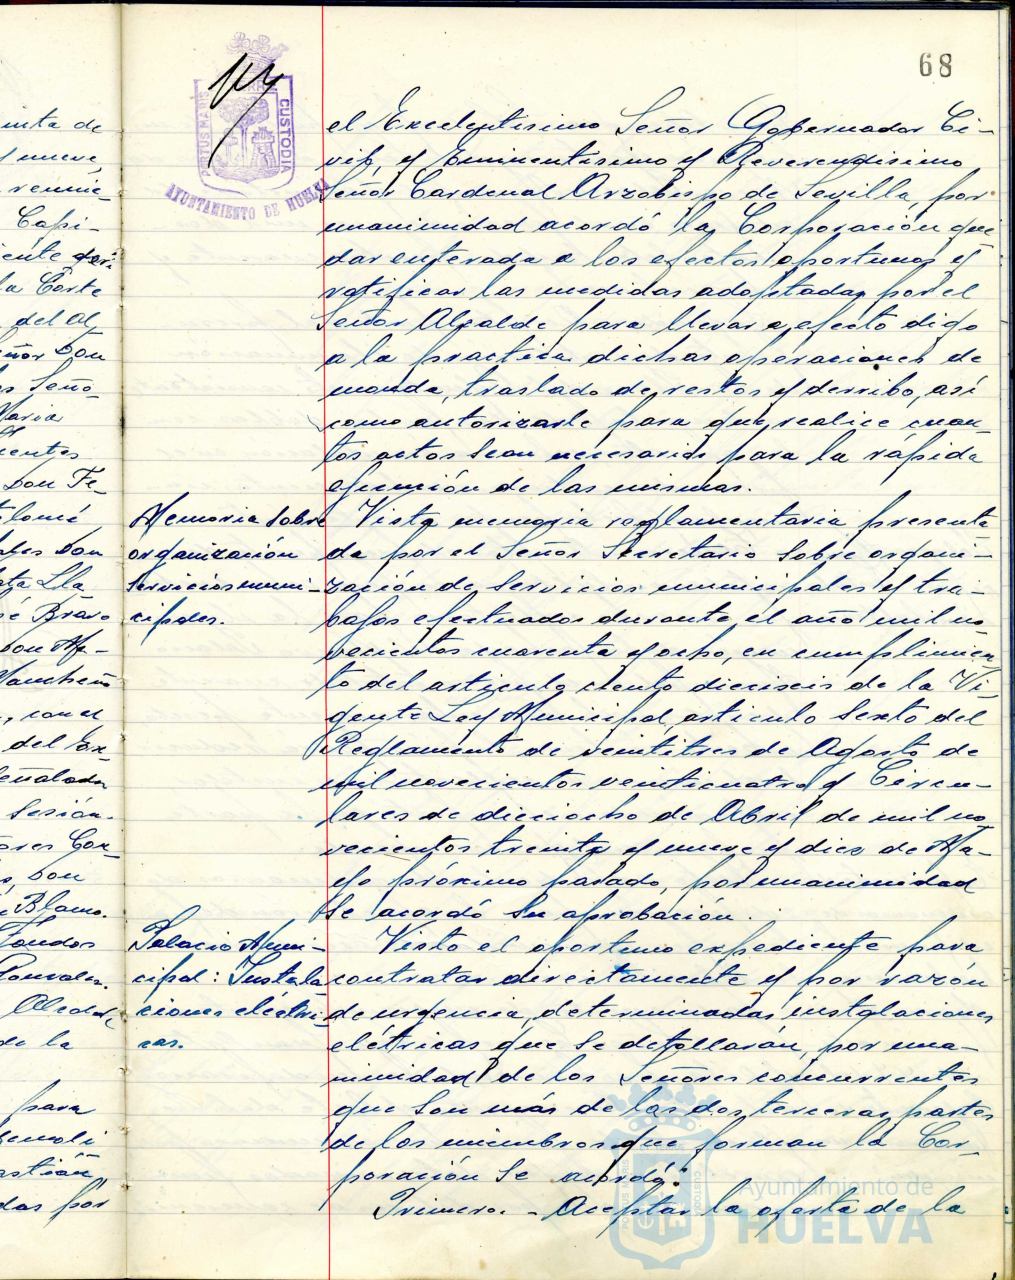 68
PORTUS MARIS
CUSTODIA
AYUNTAMIENTO DE HUELVA
el Excelentísimo Señor Gobernador Ci-
vil, y Eminentísimo y Reverendísimo
Señor Cardenal Arzobispo de Sevilla, por
unanimidad acordó la Corporación que
dar enterada a los efectos oportunos y
ratificar las medidas adoptadas por el
Señor Alcalde para llevar a efecto digo
a la practica dichas operaciones de
monda, traslado de restos y derribo, así
como autorizarle para que realice cuan-
tos actos sean necesarios para la rápida
ejecución de las mismas.
Memoria sobre
organización
servicios muni-
cipales.
Vista memoria reglamentaria presenta
da por el Señor Secretario sobre organi-
zación de servicios municipales y tra-
bajos efectuados durante el año mil no
vecientos cuarenta y ocho, en cumplimien
to del articulo ciento dieciseis de la Vi-
gente Ley Municipal, articulo sexto del
Reglamento de veintitres de Agosto de
mil novecientos veinticuatro y Circu-
lares de dieciocho de Abril de mil no
vecientos treinta y nueve y diez de Ma-
yo próximo pasado, por unanimidad
se acordó su aprobación.
Palacio Muni-
cipal: Instala
ciones eléctri-
cas.
Visto el oportuno expediente para
contratar directamente y por razón
de urgencia, determinadas instalaciones
elétricas que se detallarán, por una-
nimidad de los Señores concurrentes
que son más de las dos terceras partes
de los miembros que forman la Cor-
poración se acordó:
Primero. - Aceptar la oferta de la
Ayuntamiento de
HUELVA